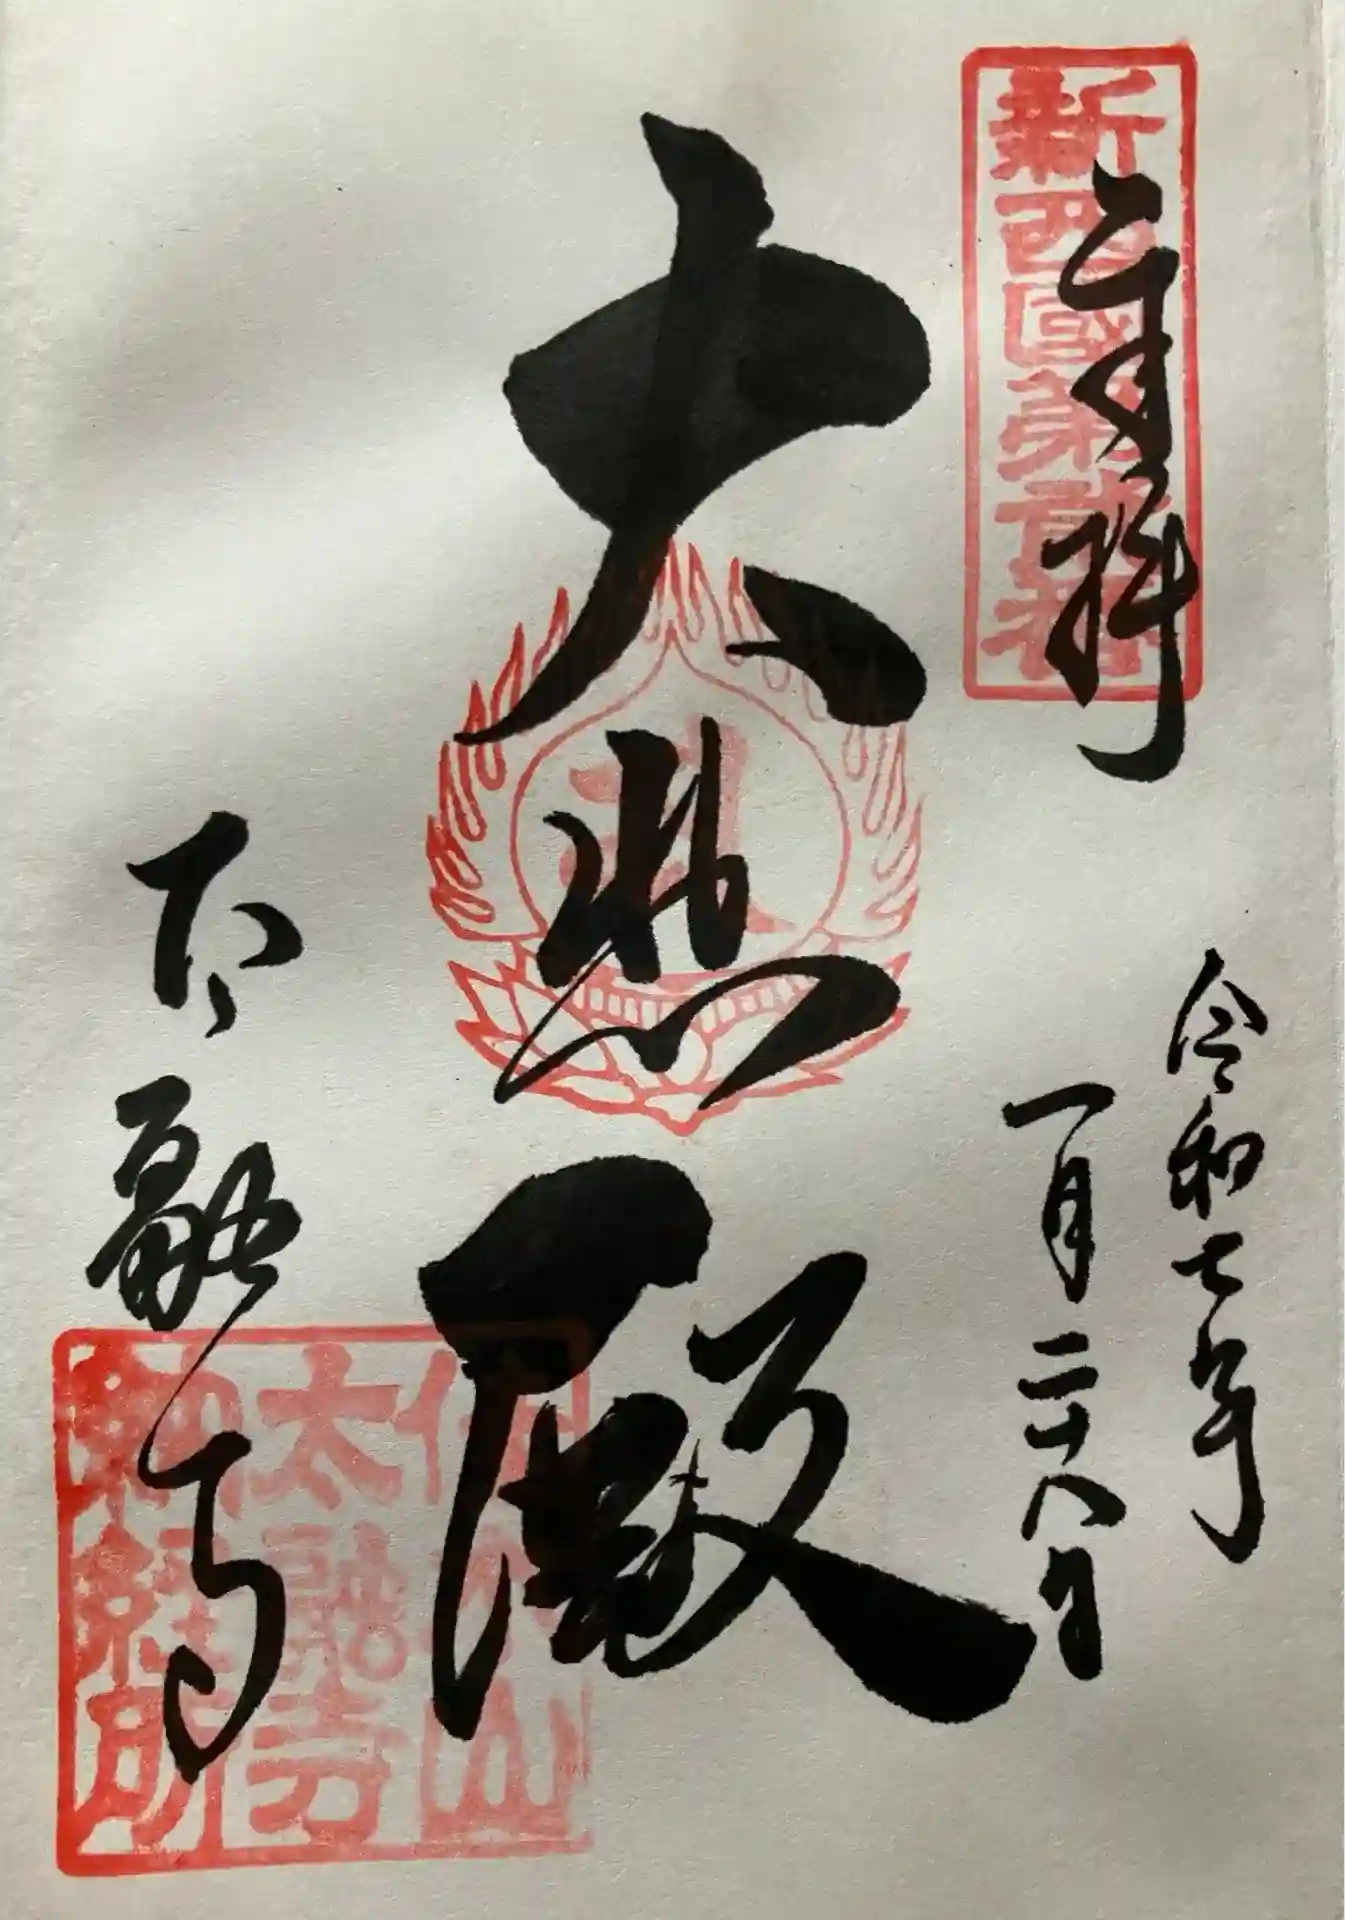 新西國第壱番
奉拝
令和七年
一月二十八日
大悲殿
太融寺
佳木山
太融寺
納経所